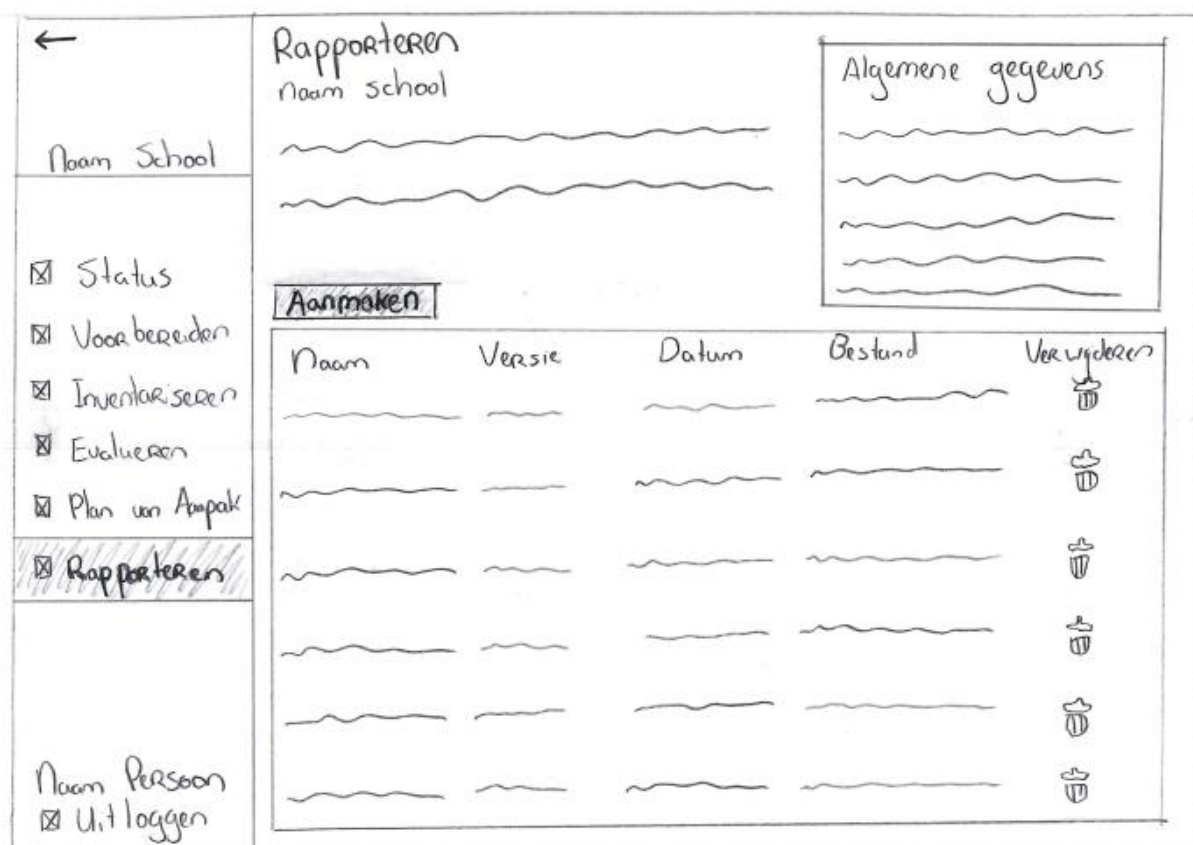 Naam School
Status
Voorbereiden
Inventariseren
Evalueren
Plan van Aanpak
Rapporteren
Naam Persoon
Uitloggen
Rapporteren
naam school
Algemene gegevens
Aanmaken
Naam Versie Datum Bestand Verwijderen